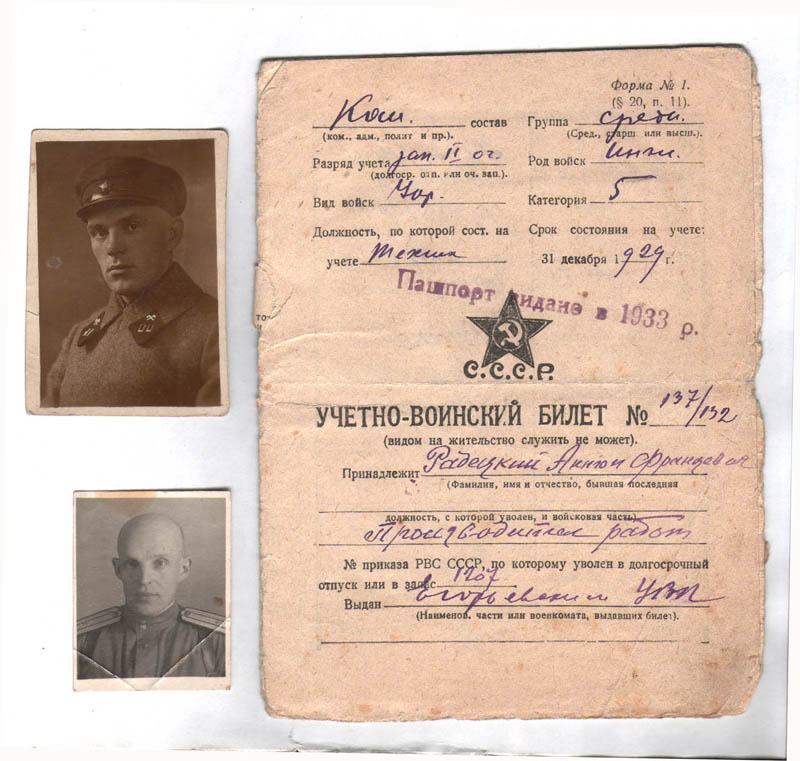 Форма № 1.
(§ 20, п. 11).
Ком. состав
(ком., адм., полит и пр.).
Группа средн.
(Сред., старш или высш.).
Разряд учета зап. II оч.
(долгоср. отп. или оч. зап.).
Род войск Инж.
Вид войск
Категория 5
Должность, по которой сост. на
учете Техник
Срок состояния на учете:
31 декабря 1929 г.
Пашпорт видано в 1933 р.
С.С.С.Р.
УЧЕТНО-ВОИНСКИЙ БИЛЕТ № 137/132
(видом на жительство служить не может).
Принадлежит Радецкий Антон Францевич
(Фамилия, имя и отчество, бывшая последняя
должность, с которой уволен, и войсковая часть).
Производител работ
№ приказа РВС СССР, по которому уволен в долгосрочный
отпуск или в запас 1207
Выдан Егорьевским УВК
(Наименов. части или военкомата, выдавших билет).